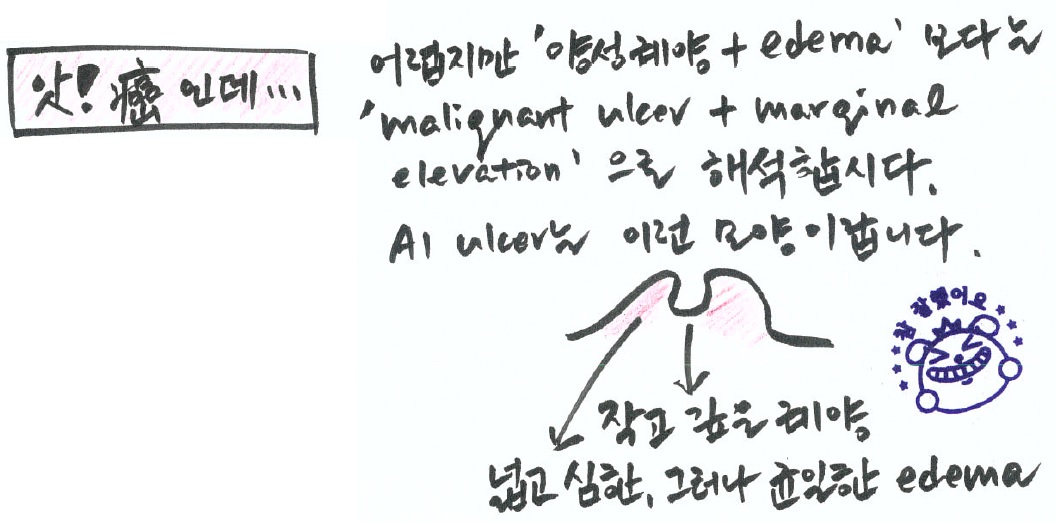 앗! 癌인데...
어렵지만 '양성궤양 + edema' 보다는
'malignant ulcer + marginal
elevation' 으로 해석합시다.
AI ulcer는 이런 모양이랍니다.
참 잘했어요
작고 깊은 궤양
넓고 심한, 그러나 균일한 edema